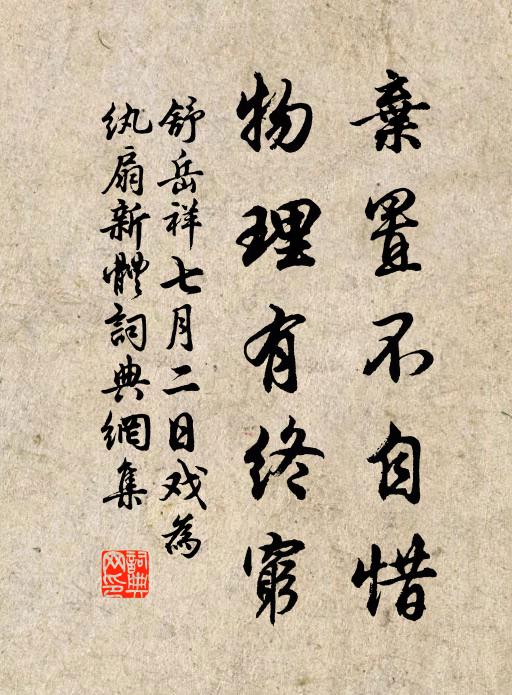 棄置不自惜
物理有終窮
舒岳祥七月二日戏為
纨扇新體詞典網集
詞典网印